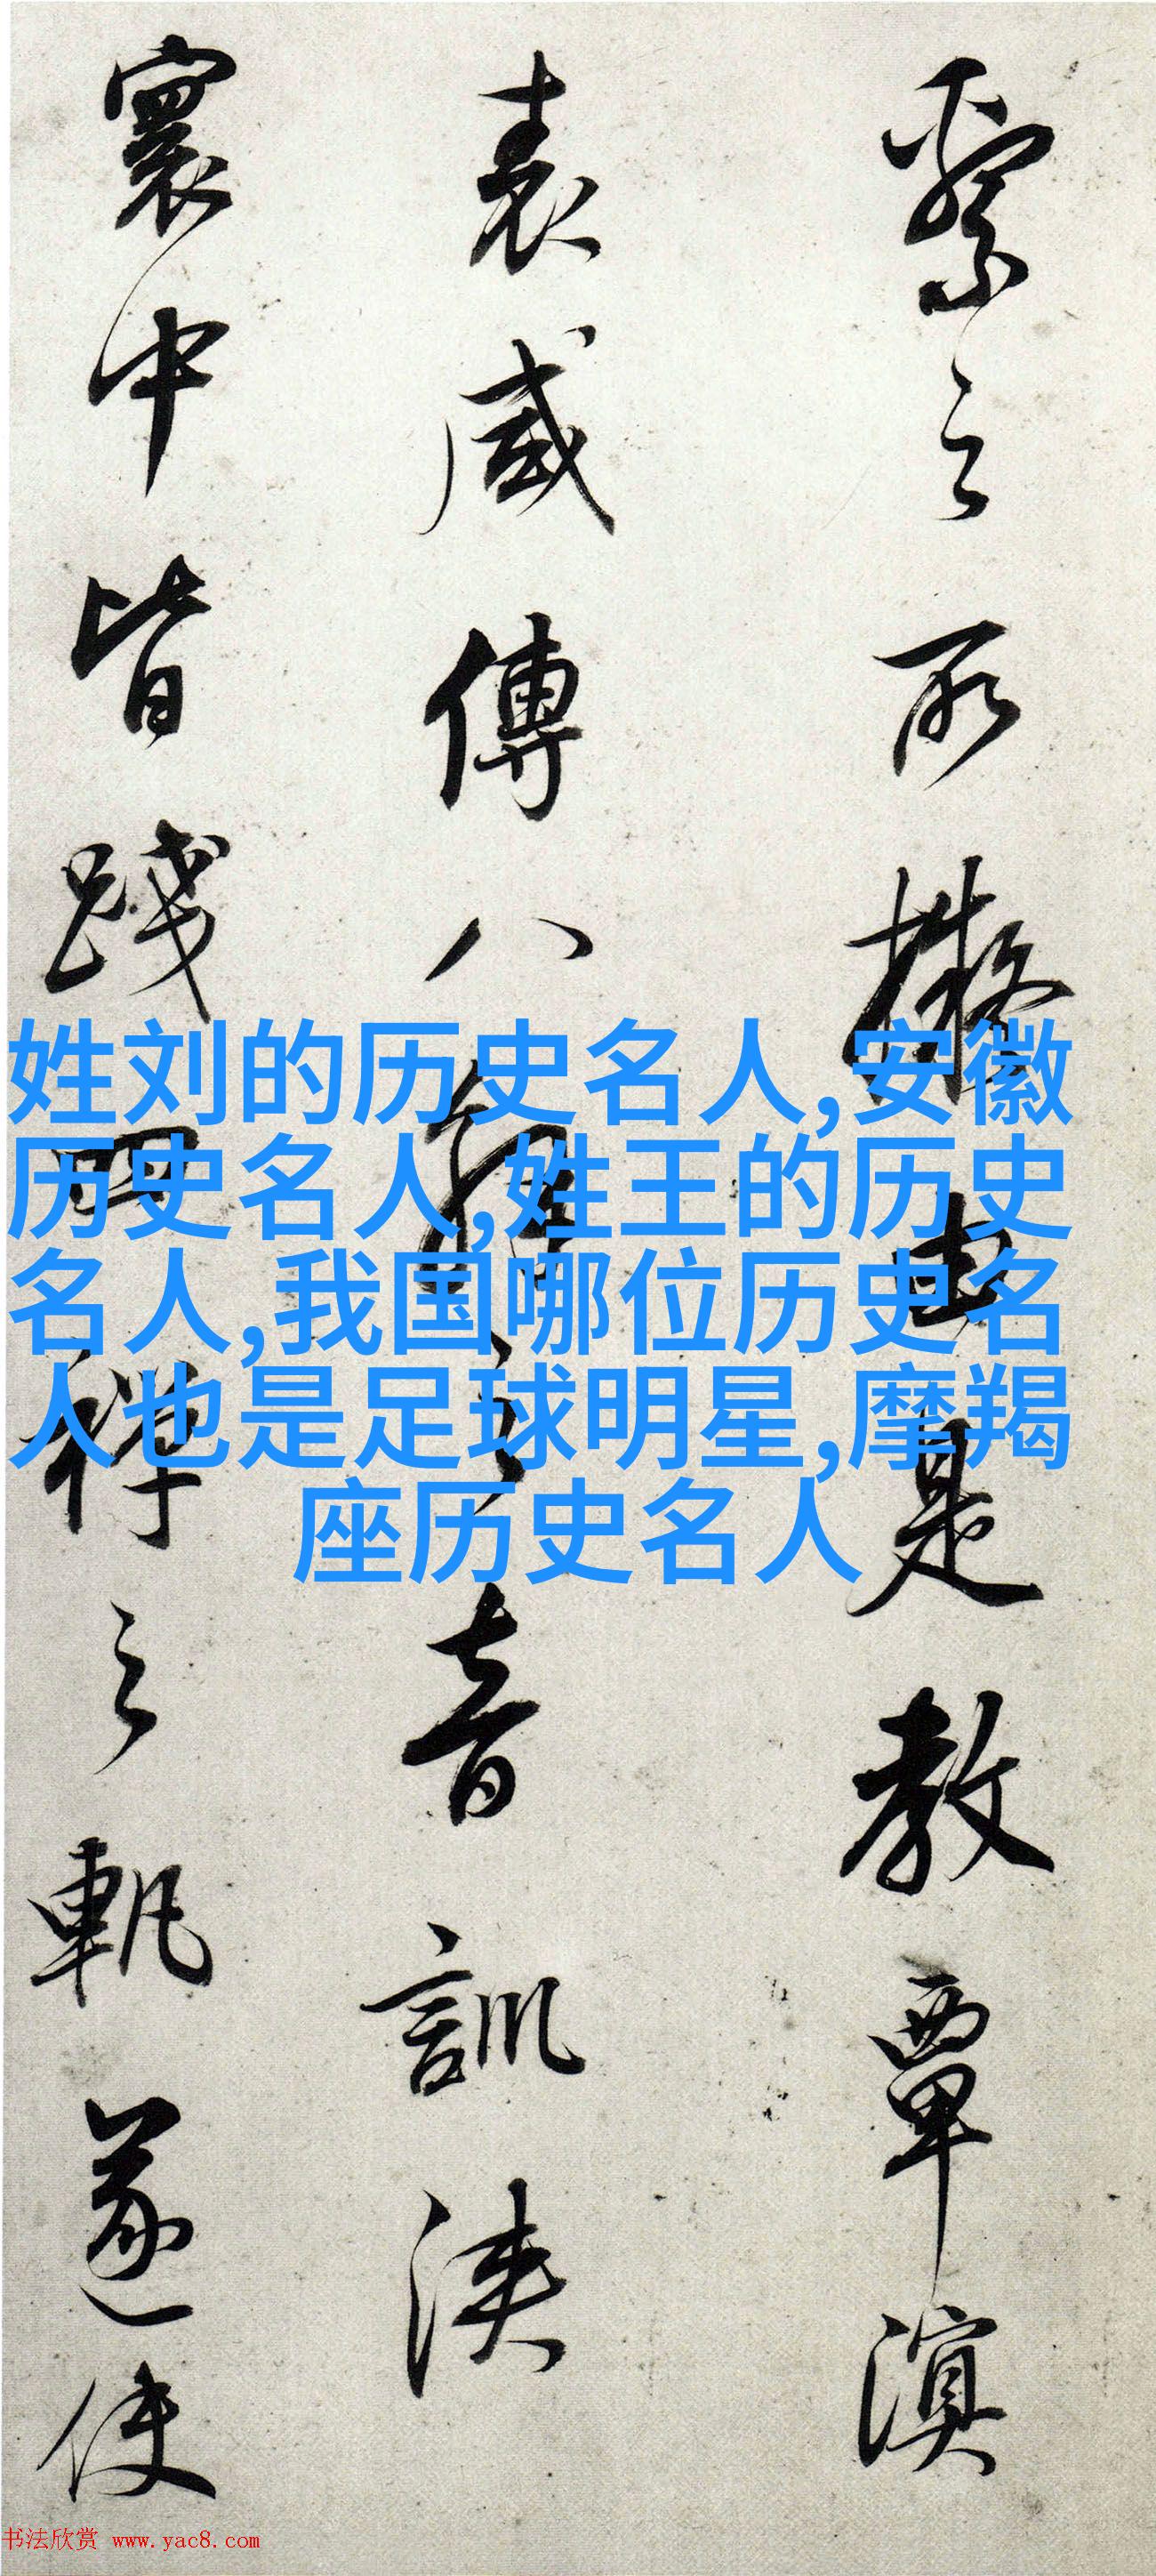 繄之所撒由是教覃溟
表威傳八解之音訓浹
寰中皆踐四禪之軌遂使
姓刘的历史名人,安徽
历史名人,姓王的历史
名人,我国哪位历史名
人也是足球明星,摩羯
座历史名人
书法欣赏 www.yac8.com